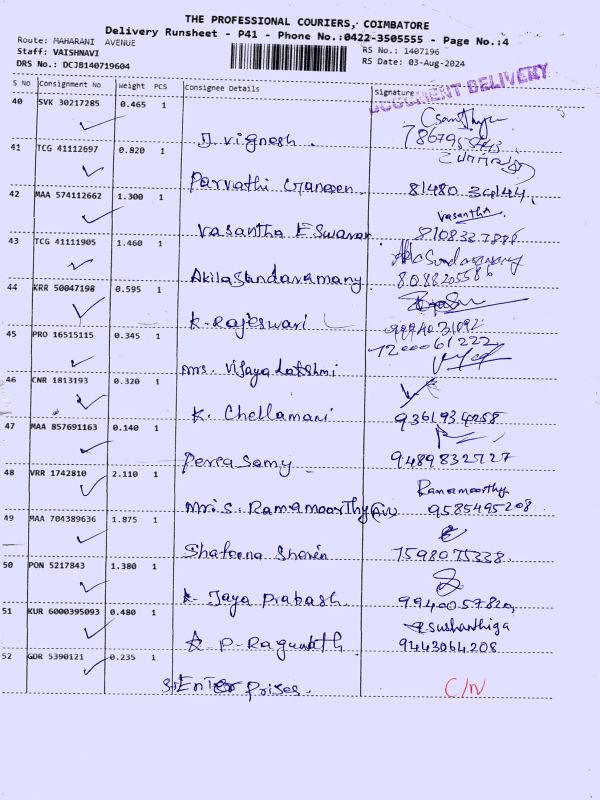 THE PROFESSIONAL COURIERS, COIMBATORE
Delivery Runsheet - P41 - Phone No.:0422-3505555 - Page No.:4
Route: MAHARANI AVENUE
RS No.: 1407196
Staff: VAISHNAVI
RS Date: 03-Aug-2024
DRS No.: DCJB140719604
DOCUMENT DELIVERY
S No Consignment No Weight PCS Consignee Details Signature
40 SVK 30217285 0.465 1
J. Vignesh.
41 TCG 41112697 0.820 1
Parvathi Ganesen 81480 36144
42 MAA 574112662 1.300 1
Vasantha.
Vasantha Eswaran
43 TCG 41111905 1.460 1
Akilasundaramany 8088205586
44 KRR 50047198 0.595 1
K-Rajeswari 9994031092
45 PRO 16515115 0.345 1
7200061222
mrs. Vijaya Lakshmi
46 CNR 1813193 0.320 1
K. Chellamani 9361934258
47 MAA 857691163 0.140 1
Periasamy 9489832727
48 VRR 1742810 2.110 1
Ramamoorthy
Mr.S. Ramamoorthy 9585495208
49 MAA 704389636 1.875 1
Shafeena Sherin 7598075338.
50 PON 5217843 1.380 1
Jaya Prakash. 9940057820
51 KUR 6000395093 0.480 1
Sushanthiga
P-Ragunath 9443064208
52 GDR 5390121 0.235 1
Enterprises. C/N